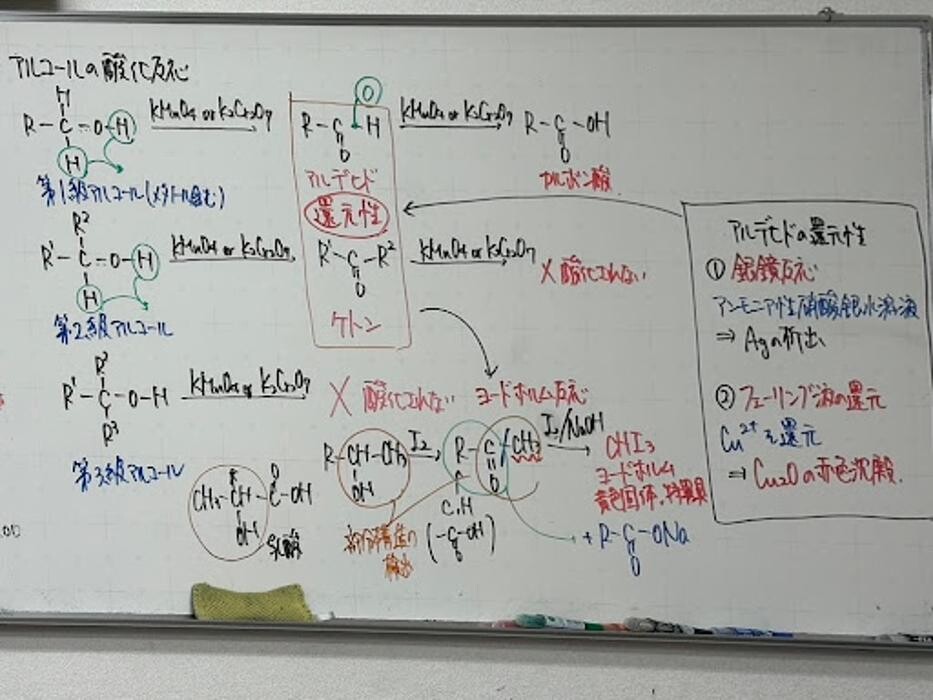 アルコールの酸化反応
H
R-C-O-H
H
KMnO4 or K2Cr2O7
O
R-C-H
O
アルデヒド
還元性
KMnO4 or K2Cr2O7
R-C-OH
O
カルボン酸
第1級アルコール(メタノール含む)
R²
R¹-C-O-H
H
KMnO4 or K2Cr2O7
R¹-C-R²
O
ケトン
KMnO4 or K2Cr2O7
× 酸化されない
第2級アルコール
R²
R¹-C-O-H
R³
KMnO4 or K2Cr2O7
× 酸化されない
第3級アルコール
アルデヒドの還元性
① 銀鏡反応
アンモニア性硝酸銀水溶液
⇒ Agの析出
② フェーリング液の還元
Cu²⁺を還元
⇒ Cu2Oの赤色沈殿
ヨードホルム反応
R-CH-CH3
OH
I2
R-C-CH3
O
I2/NaOH
CHI3
ヨードホルム
黄色固体、特異臭
C,H
(-C-OH)
O
部分構造の
検出
+ R-C-ONa
O
CH3-*CH-C-OH
OH
O
乳酸